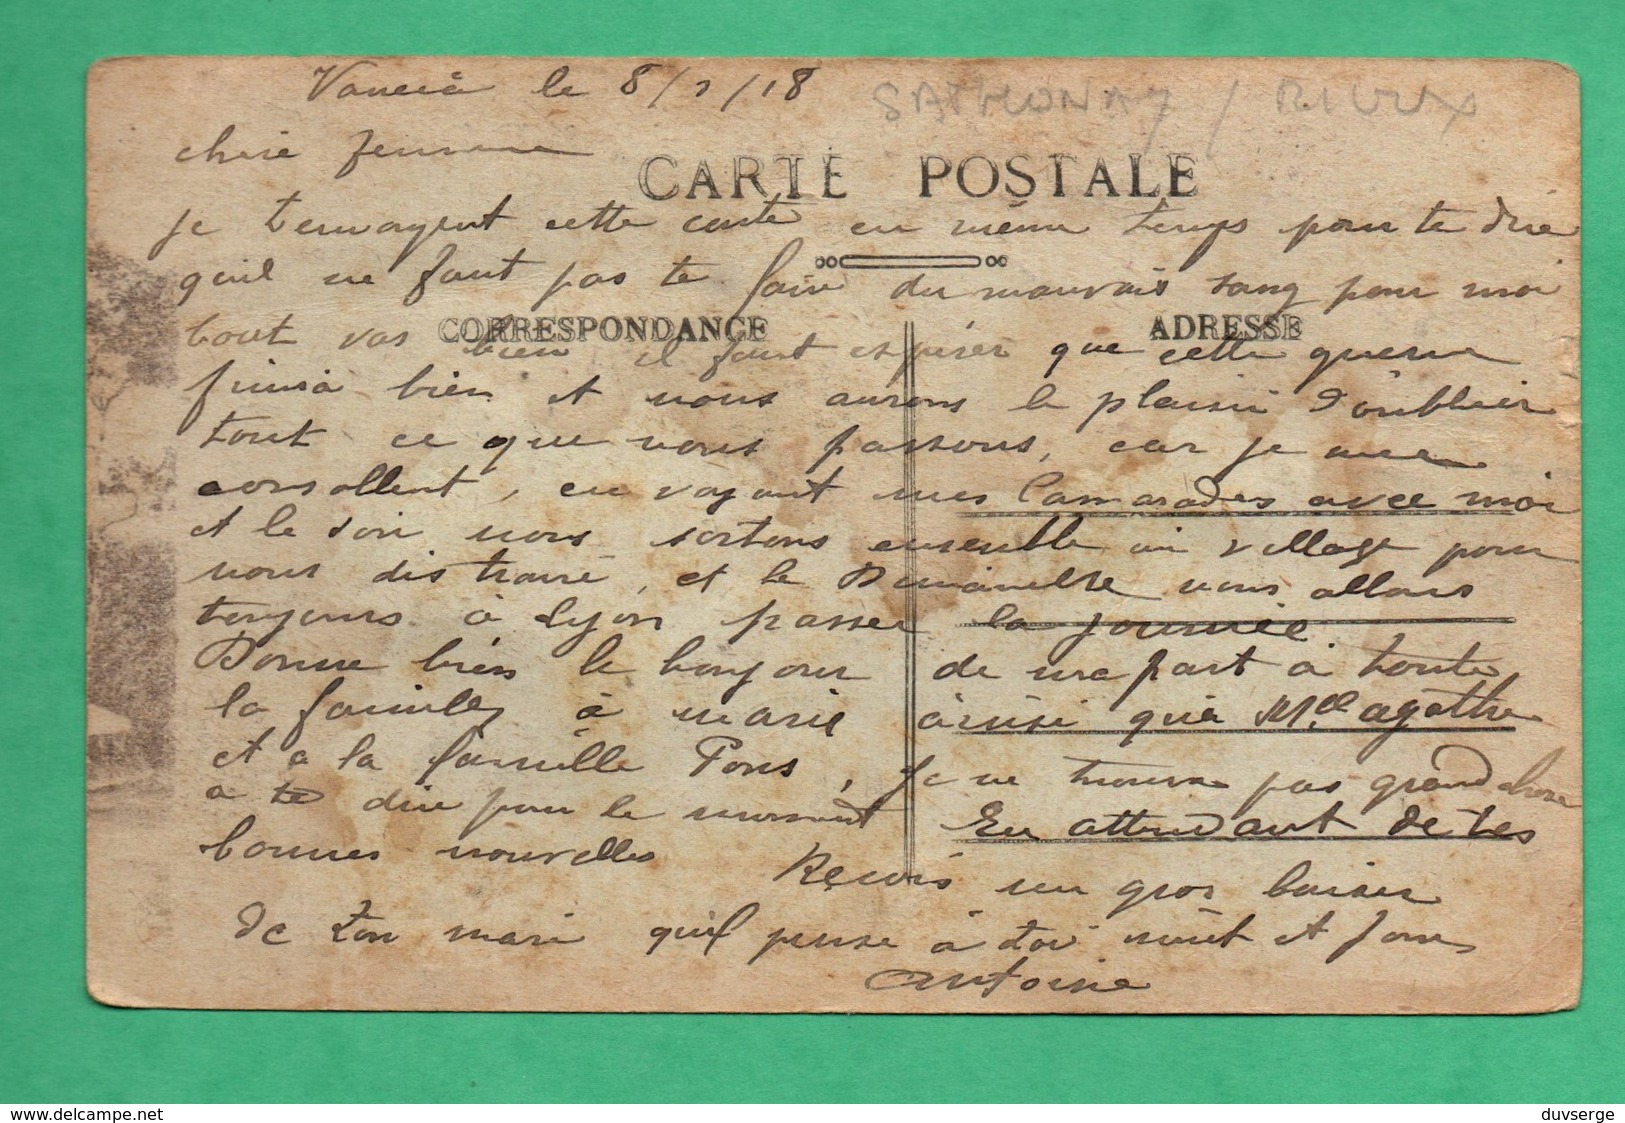 Vancia le 8/3/18 SATHONAY / RILLIEUX
chere femme
CARTE POSTALE
je t'envoyent cette carte en même temps pour te dire
quil ne faut pas te faire du mauvais sang pour moi
CORRESPONDANCE ADRESSE
tout vas bien il faut espérer que cette guerre
finira bien et nous aurons le plaisir d'oublier
tout ce que nous passons, car je me
consollent, en voyant mes Camarades avec moi
et le soir nous sortons ensemble au village pour
nous distraire, et le Dimanche nous allons
toujours à Lyon passer la journée
Donne bien le bonjour de ma part à toute
la famille, à marie ainsi que Mlle agathe
et a la famille Pons, Je ne trouve pas grand chose
a te dire pour le moment En attendant de tes
bonnes nouvelles Reçois un gros baiser
de ton mari quil pense à toi nuit et jour
Antoine
www.delcampe.net
duvserge